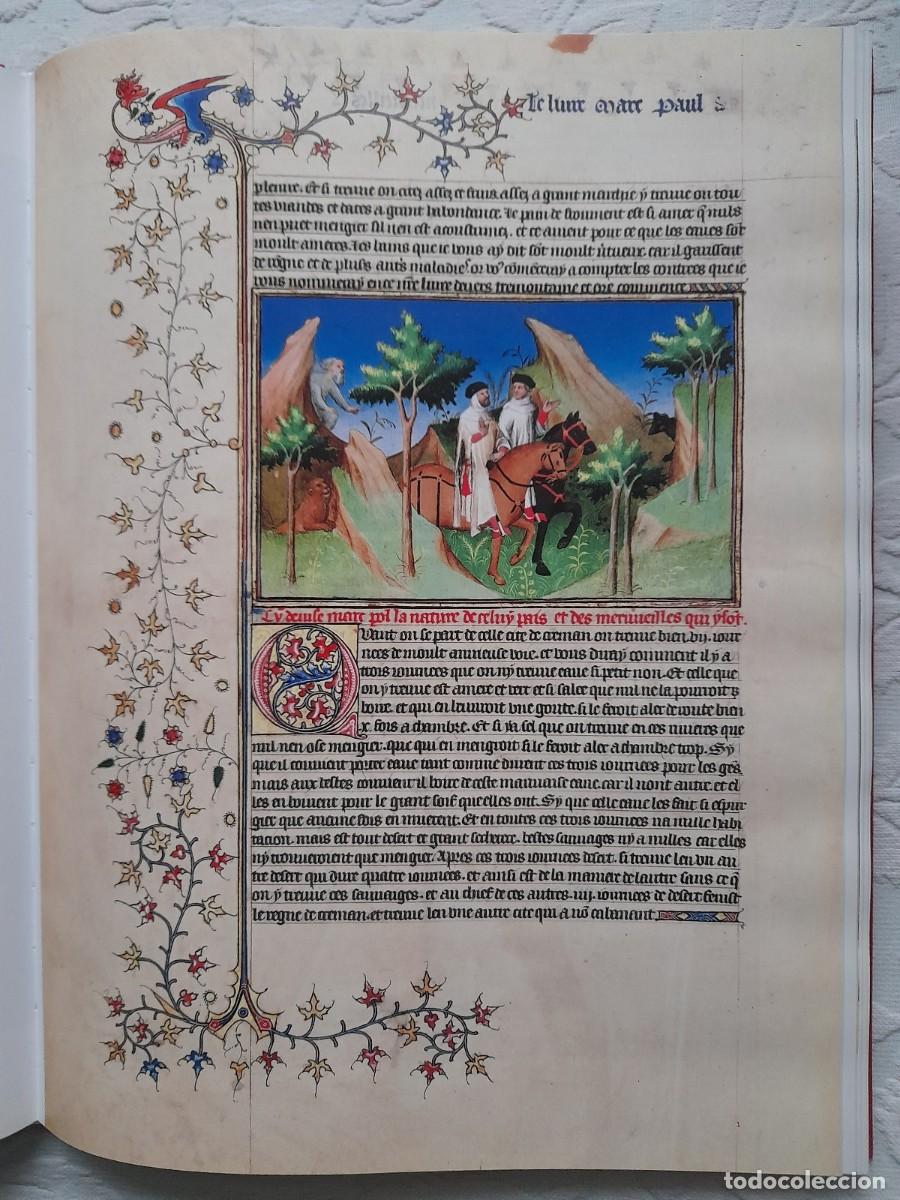 Le livre Marc Paul
pleniere. Et si treuve on citez assez et bains assez a grant mardre y treuve on tou
tes viandes et dates a grant habondance. Le pain de froument est si amer q̃ nuls
nen puet mengier sil nen est acoustumez, et ce avient pour ce que les eaues sõt
moult ameres. Les bains que ie vous ay dit sõt moult
de rõgne et de plus autres maladies. or vous cõmenceray a compter les contrees que ie
vous nommeray en ce livre devers tremontaine et ore commence
Cy devise marc pol la nature de celui païs et des merveilles qui y sõt.
Quant on se part de celle cite de creman on treuve bien .vij. iour
nees de moult annieuse voie. et vous diray comment il y a
trois iournees que on ny treuve eaue si petit non. Et celle que
on y treuve est amere et vert et si salee que nul ne la pourroit
boire. et qui en buvroit une goute. si le feroit aler de route bien
.x. fois a chambre. Et si va sel que on treuve en ces rivieres que
nul nen ose mengier. que qui en mengroit si le feroit aler a chambre trop. Sy
que il convient porter eaue tant comme durent ces trois iournees pour les gẽs
mais aux bestes convient il boire de celle mauvaise eaue. car il nont autre. et el
les en boivent pour le grant soif que elles ont. Sy que celle eaue les fait si espur
gier que aucune fois en muerent. Et en toutes ces trois iournees na nulle habi
tacion. mais est tout desert et grant secheur. bestes sauvages ny a nulles car elles
ny trouveroient que mengier. Apres ces trois iournees desert. si treuve len un au
tre desert qui dure quatre iournees. et ainsi est de la maniere de lautre sans ce q̃
on y treuve des sauvaiges. et au chief de ces autres .iiij. iournees de desert fenist
le regne de creman. et treuve len une autre cite qui a nõ cabanant.
todocoleccion